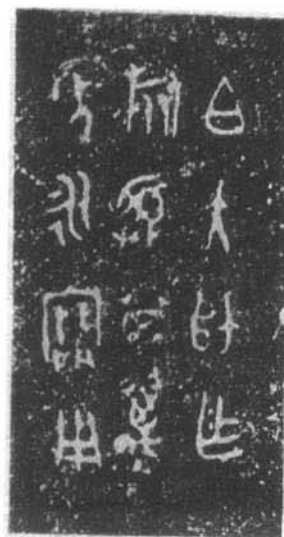 白大師乍
旅盨其萬
年永寶用